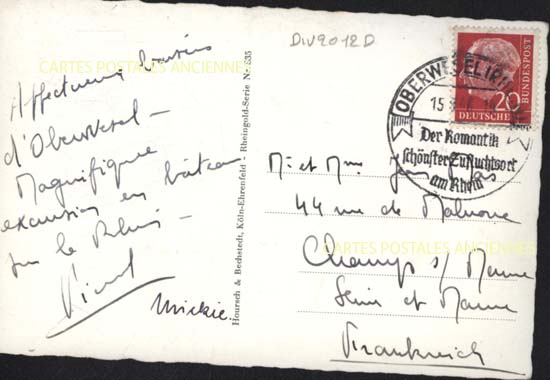 DIV9012D
CARTES POSTALES ANCIENNES
Affectueux
d'Oberwesel –
Magnifique
excursion en bateau
sur le Rhin –
Mickie.
Hoursch & Bechstedt, Köln-Ehrenfeld - Rheingold-Serie Nr. 535
OBERWESEL (RH
15
DEUTSCHE
BUNDESPOST
20
Der Romantik
schönster Zufluchtsort
am Rhein
M. et Mme Jean
44 rue de
CARTES POSTALES ANCIENNES
Champs s/ Marne
Seine et Marne
Frankreich